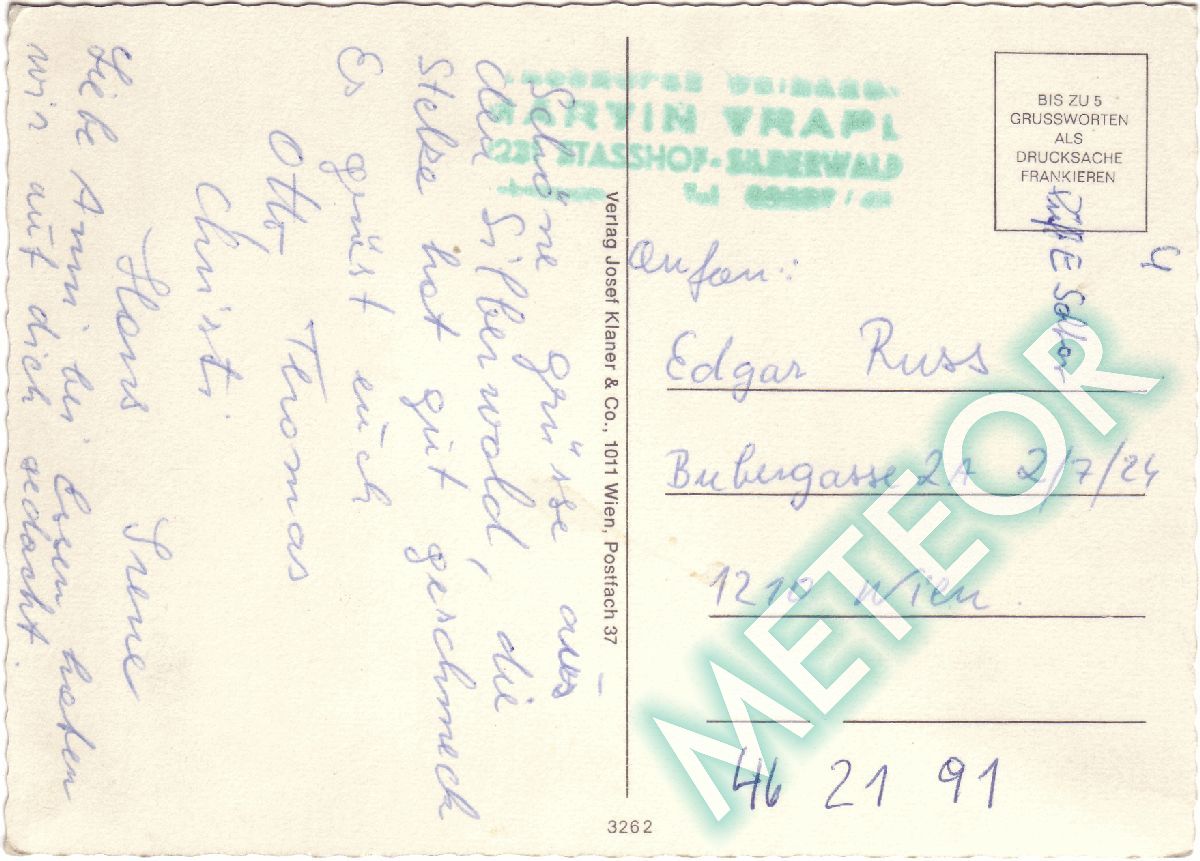 Schöne grüsse aus
den Silberwald, die
Stelze hat gut geschmeck
Es grüst euch
Otto Thomas
Christi
Hans Irene
Liebe Anni bei Essen haben
wir auf dich gedacht.
Verlag Josef Klaner & Co., 1011 Wien, Postfach 37
3262
MARVIN VRAPL
STASSHOF-SILBERWALD
Tel
BIS ZU 5
GRUSSWORTEN
ALS
DRUCKSACHE
FRANKIEREN
4
Anfan:
Edgar Russ
Bubergasse 2A 2/7/24
1210 Wien
46 21 91
METEOR